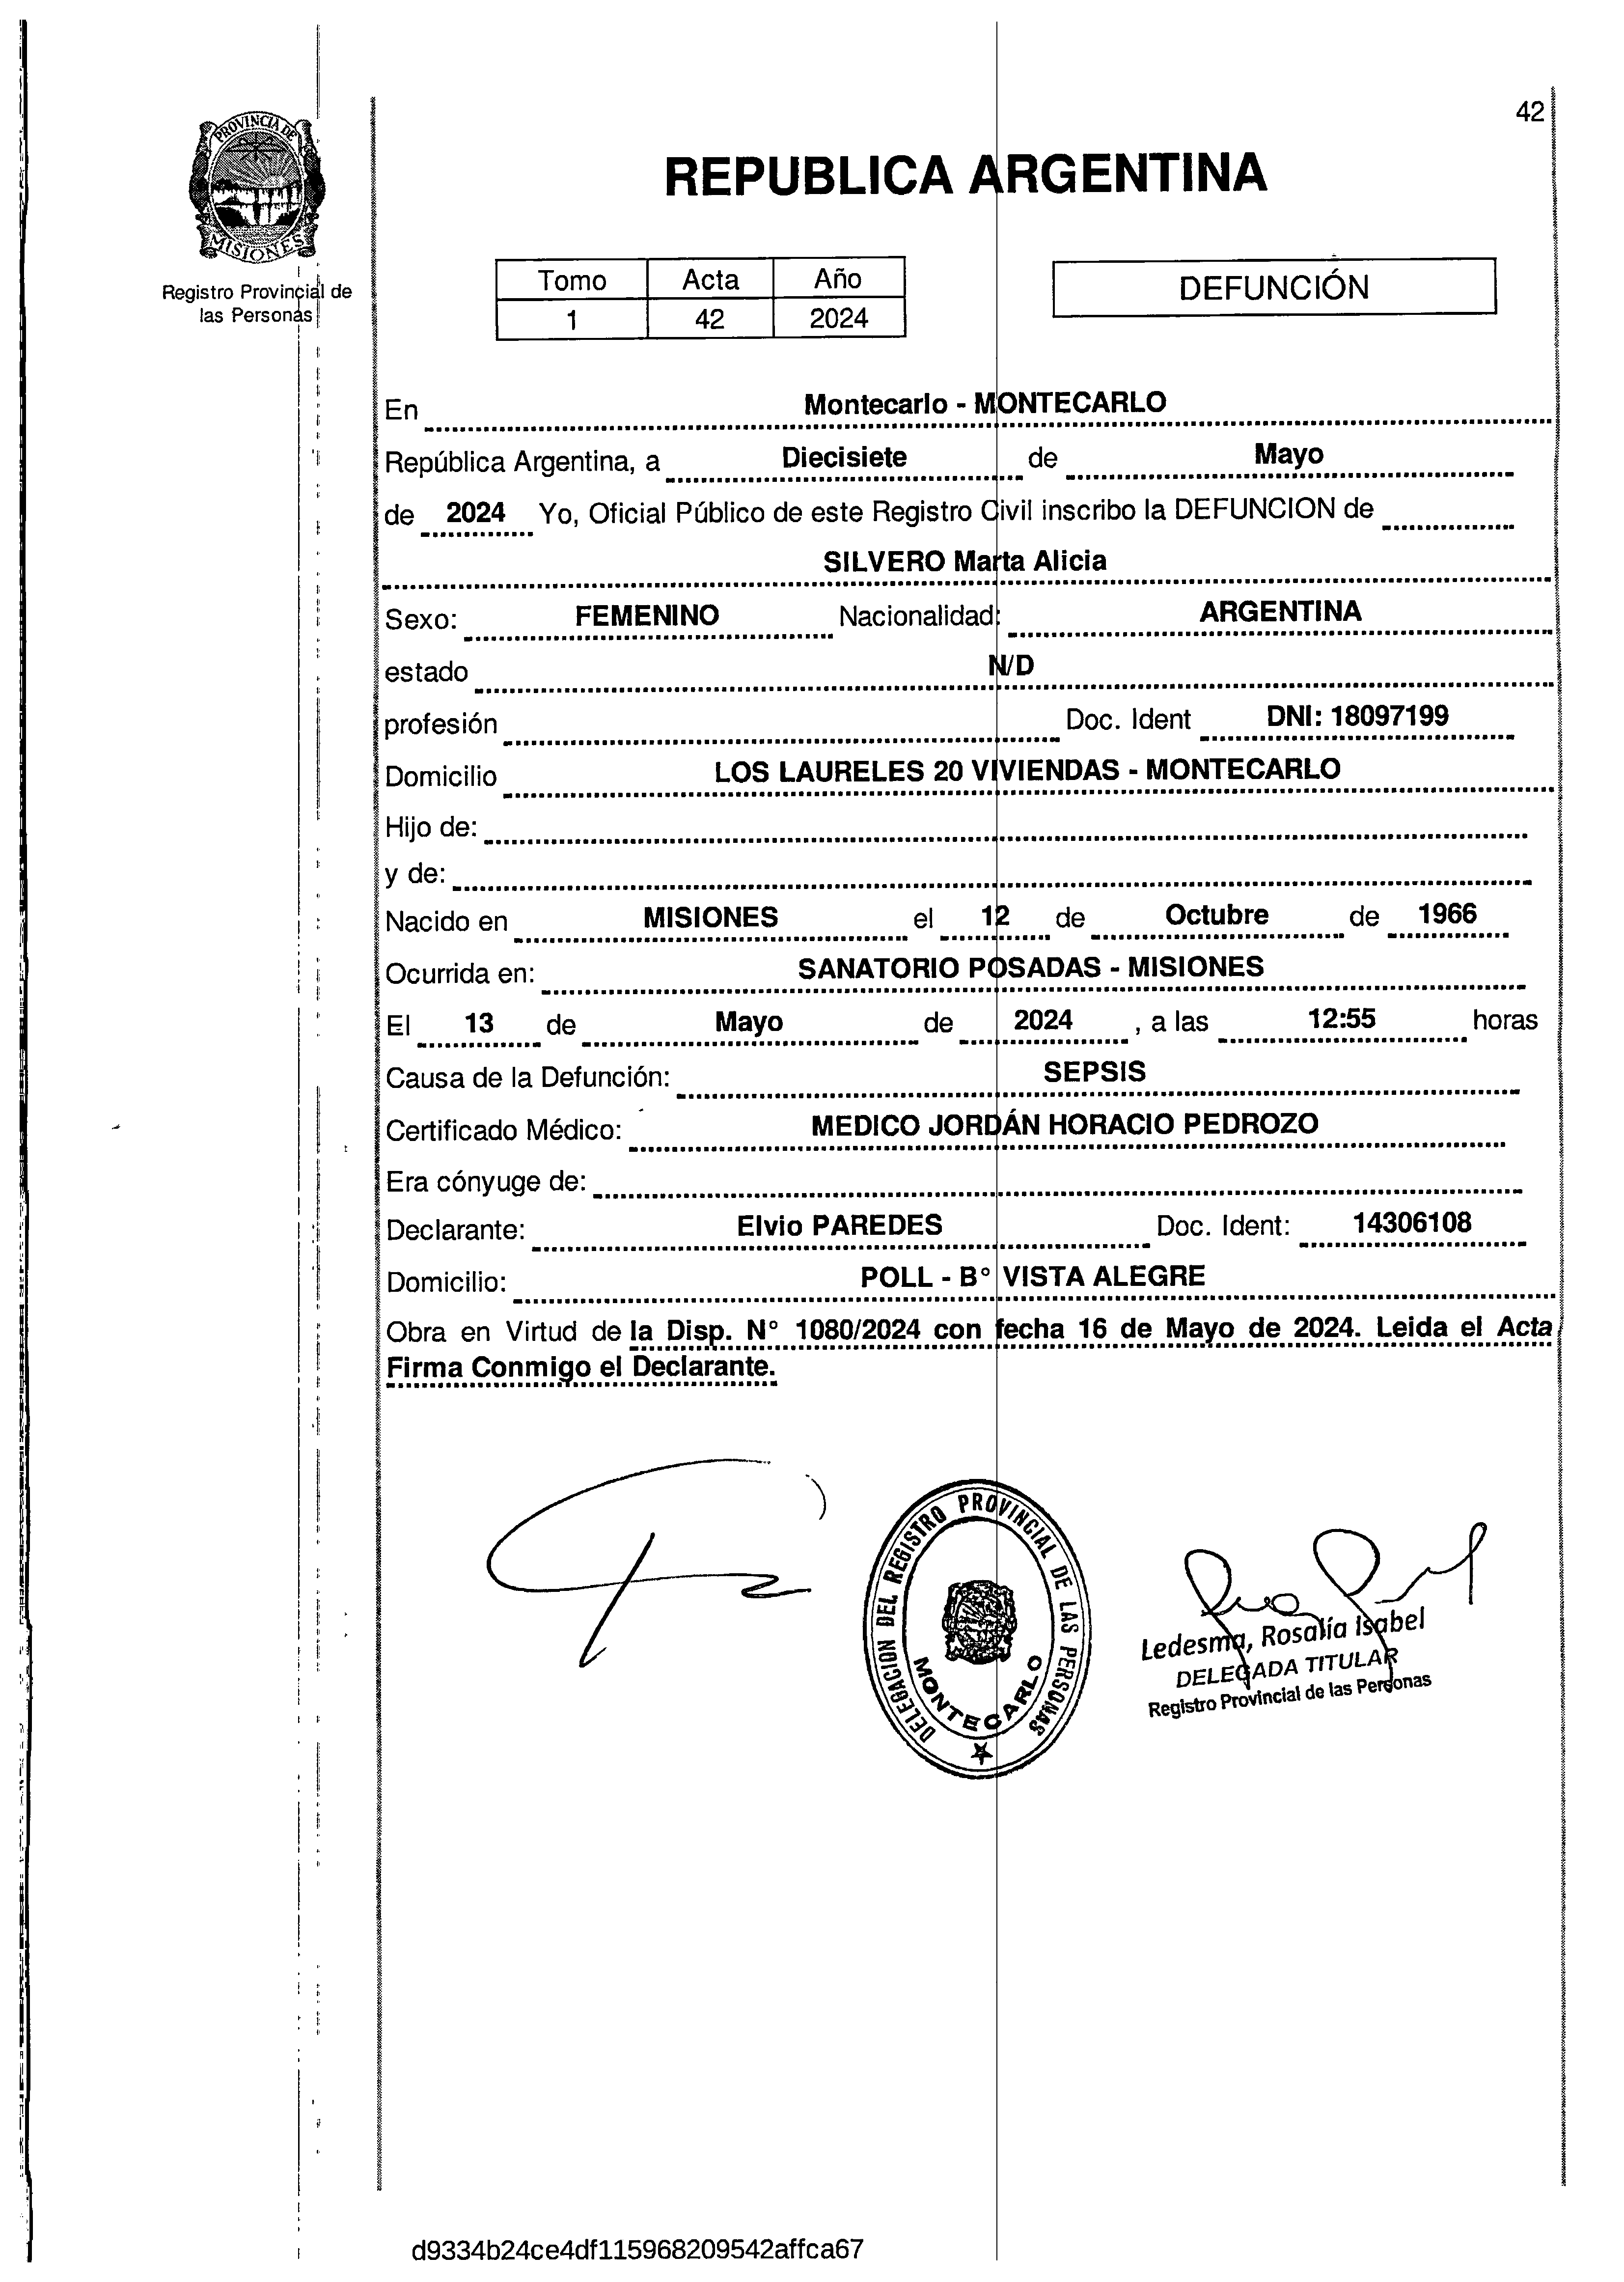 42
PROVINCIA DE
MISIONES
Registro Provincial de
las Personas
REPUBLICA ARGENTINA
Tomo Acta Año
1 42 2024
DEFUNCIÓN
En Montecarlo - MONTECARLO
República Argentina, a Diecisiete de Mayo
de 2024 Yo, Oficial Público de este Registro Civil inscribo la DEFUNCION de
SILVERO Marta Alicia
Sexo: FEMENINO Nacionalidad: ARGENTINA
estado N/D
profesión Doc. Ident DNI: 18097199
Domicilio LOS LAURELES 20 VIVIENDAS - MONTECARLO
Hijo de:
y de:
Nacido en MISIONES el 12 de Octubre de 1966
Ocurrida en: SANATORIO POSADAS - MISIONES
El 13 de Mayo de 2024 , a las 12:55 horas
Causa de la Defunción: SEPSIS
Certificado Médico: MEDICO JORDÁN HORACIO PEDROZO
Era cónyuge de:
Declarante: Elvio PAREDES Doc. Ident: 14306108
Domicilio: POLL - B° VISTA ALEGRE
Obra en Virtud de la Disp. N° 1080/2024 con fecha 16 de Mayo de 2024. Leida el Acta
Firma Conmigo el Declarante.
DELEGACION DEL REGISTRO PROVINCIAL DE LAS PERSONAS
MONTECARLO
Ledesma, Rosalía Isabel
DELEGADA TITULAR
Registro Provincial de las Personas
d9334b24ce4df115968209542affca67